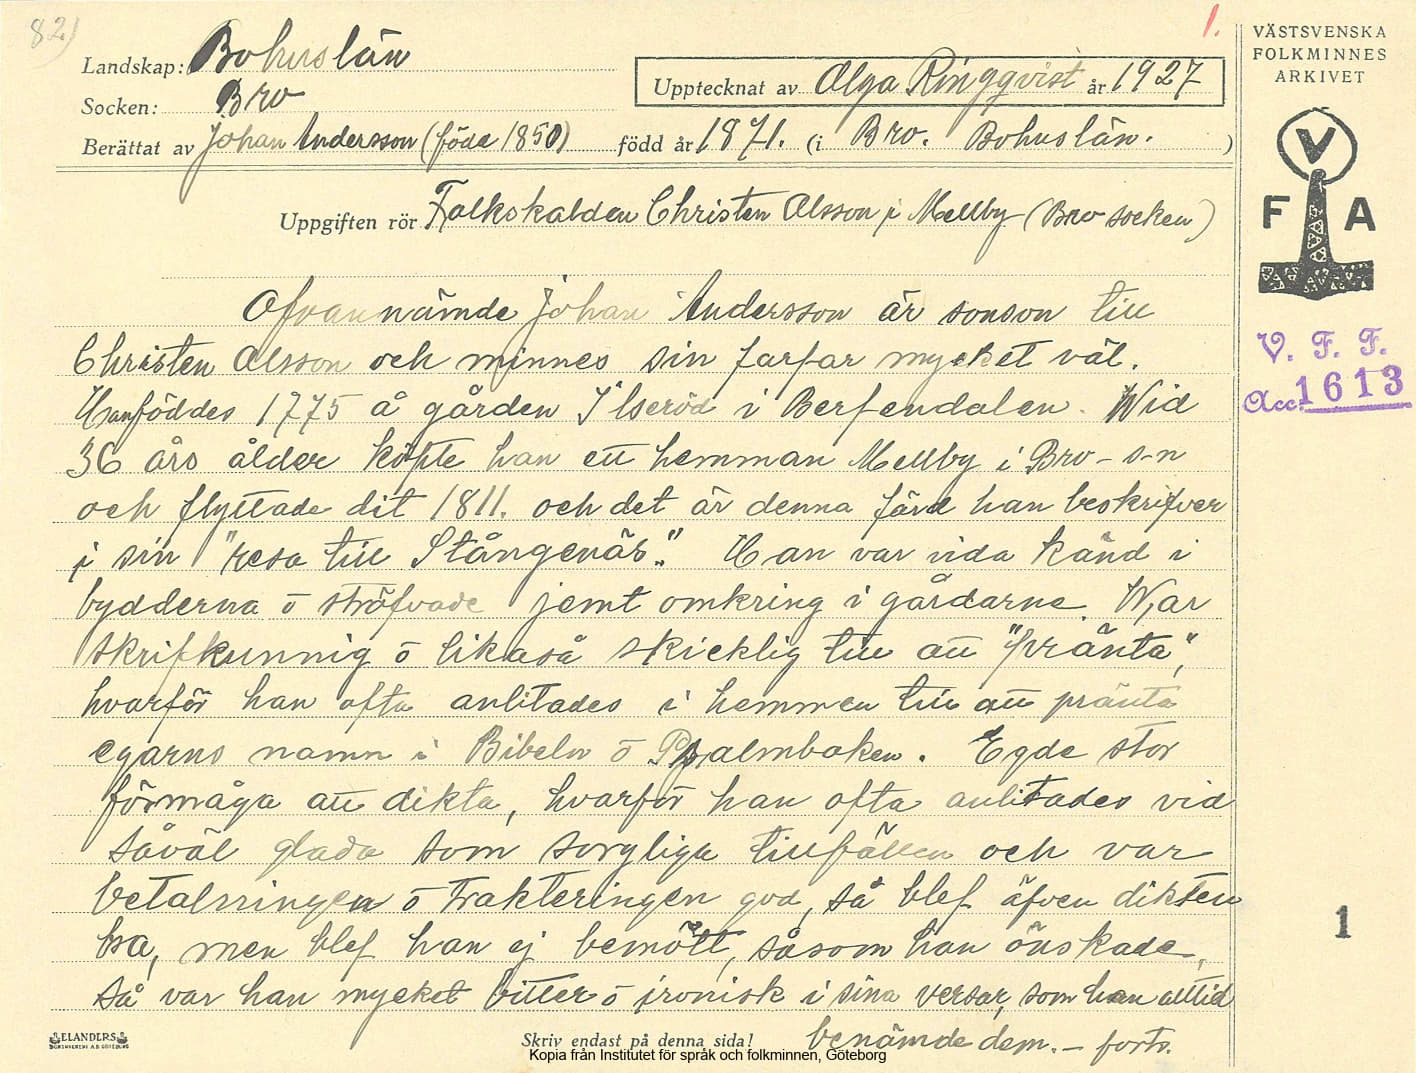 82)
1.
Landskap: Bohuslän
Upptecknat av Olga Ringqvist år 1927
Socken: Bro
Berättat av Johan Andersson (född 1850) född år 1871. (i Bro. Bohuslän. )
Uppgiften rör Folkskalden Christen Olsson i Mellby (Bro socken)
Ofvannämde Johan Andersson är sonson till
Christen Olsson och minnes sin farfar mycket väl.
Han föddes 1775 å gården Ilseröd i Berfendalen. Wid
36 års ålder köpte han ett hemman Mellby i Bro-s-n
och flyttade dit 1811. och det är denna färd han beskrifver
i sin "resa till Stångenäs". Han var vida känd i
bydderna o ströfvade jemt omkring i gårdarne. War
skrifkunnig o likaså skicklig till att "pränta",
hvarför han ofta anlitades i hemmen till att pränta
egarns namn i Bibeln o Psalmboken. Egde stor
förmåga att dikta, hvarför han ofta anlitades vid
såväl glada som sorgliga tillfällen och var
betalningen o trakteringen god, så blef äfven dikten
bra, men blef han ej bemött, såsom han önskade,
så var han mycket bitter o ironisk i sina versar, som han alltid
benämde dem. – forts.
ELANDERS
BOKTRYCKERI A.B. GÖTEBORG
Skriv endast på denna sida!
Kopia från Institutet för språk och folkminnen, Göteborg
VÄSTSVENSKA
FOLKMINNES
ARKIVET
V
F A
V. F. F.
Acc. 1613
1